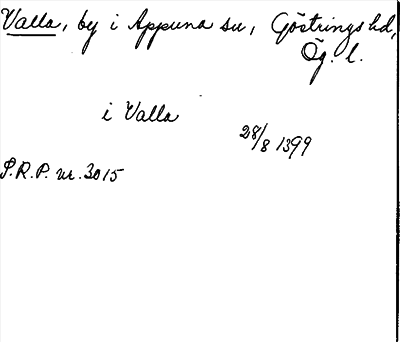 Valla, by i Appuna sn, Göstrings hd,
Ög. l.
i Valla
28/8 1399
S.R.P. nr. 3015